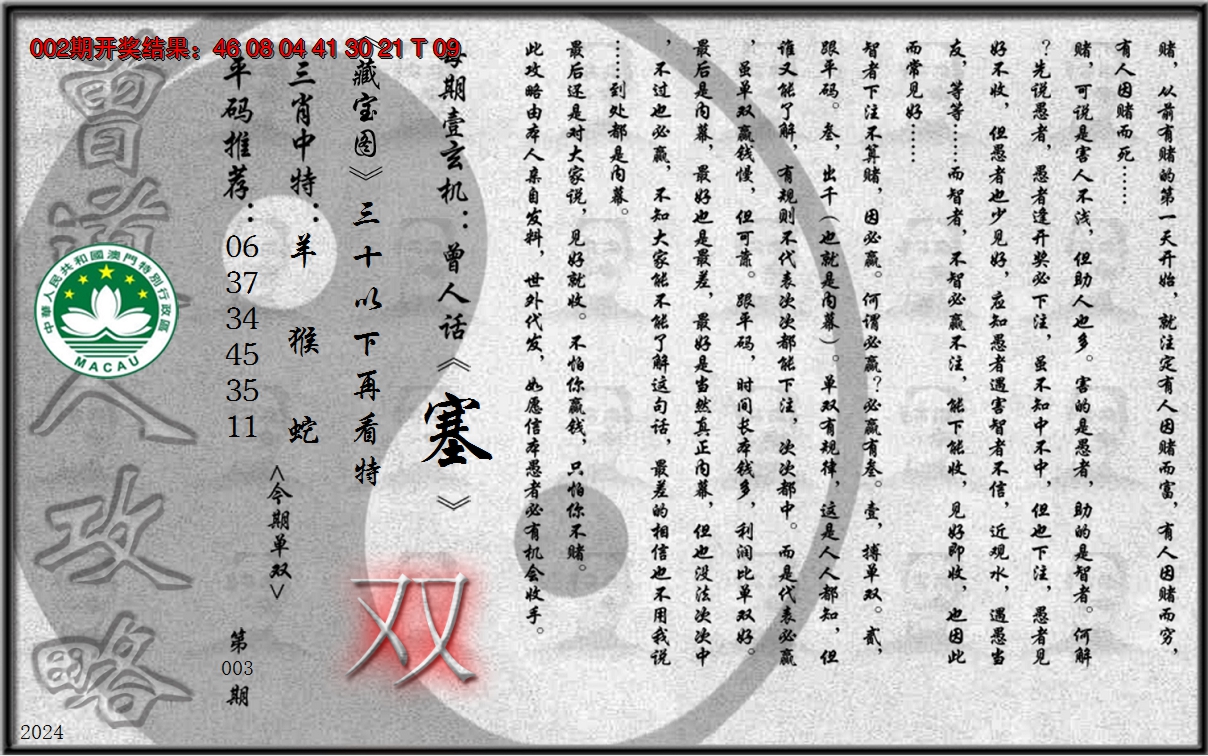 002期开奖结果：46 08 04 41 30 21 T 09
赌，从前有赌的第一天开始，就注定有人因赌而富，有人因赌而穷，
有人因赌而死……
赌，可说是害人不浅，但助人也多。害的是愚者，助的是智者。何解
？先说愚者，愚者逢开奖必下注，虽不知中不中，但也下注，愚者见
好不收，但愚者也少见好，应知愚者遇害智者不信，近观水，遇愚当
友，等等……而智者，不智必赢不注，能下能收，见好即收，也因此
而常见好……
智者下注不算赌，因必赢。何谓必赢？必赢有叁。壹，搏单双。贰，
跟平码。叁，出千（也就是内幕）。单双有规律，这是人人都知，但
谁又能了解，有规则不代表次次都能下注，次次都中。而是代表必赢
，虽单双赢钱慢，但可靠。跟平码，时间长本钱多，利润比单双好。
最后是内幕，最好也是最差，最好是当然真正内幕，但也没法次次中
，不过也必赢，不知大家能不能了解这句话，最差的相信也不用我说
……到处都是内幕。
最后还是对大家说，见好就收。不怕你赢钱，只怕你不赌。
此攻略由本人亲自发料，世外代发，如愿信本愚者必有机会收手。
每期壹玄机：曾人话《塞》
《藏宝图》三十以下再看特
双
三肖中特：羊 猴 蛇
<今期单双>
平码推荐：
06
37
34
45
35
11
第
003
期
曾道人攻略
中華人民共和國澳門特別行政區
MACAU
2024